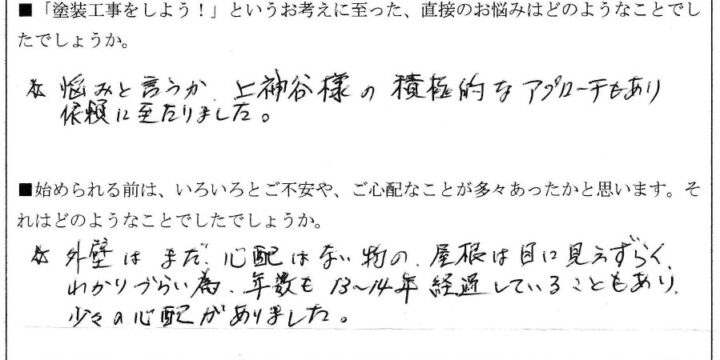 ■「塗装工事をしよう！」というお考えに至った、直接のお悩みはどのようなことでし
たでしょうか。
☆ 悩みと言うか、上神谷様の積極的なアプローチもあり
依頼に至たりました。
■始められる前は、いろいろとご不安や、ご心配なことが多々あったかと思います。そ
れはどのようなことでしたでしょうか。
☆ 外壁はまだ心配はない物の、屋根は目に見えずらく、
わかりづらい為、年数も13～14年経過していることもあり、
少々の心配がありました。